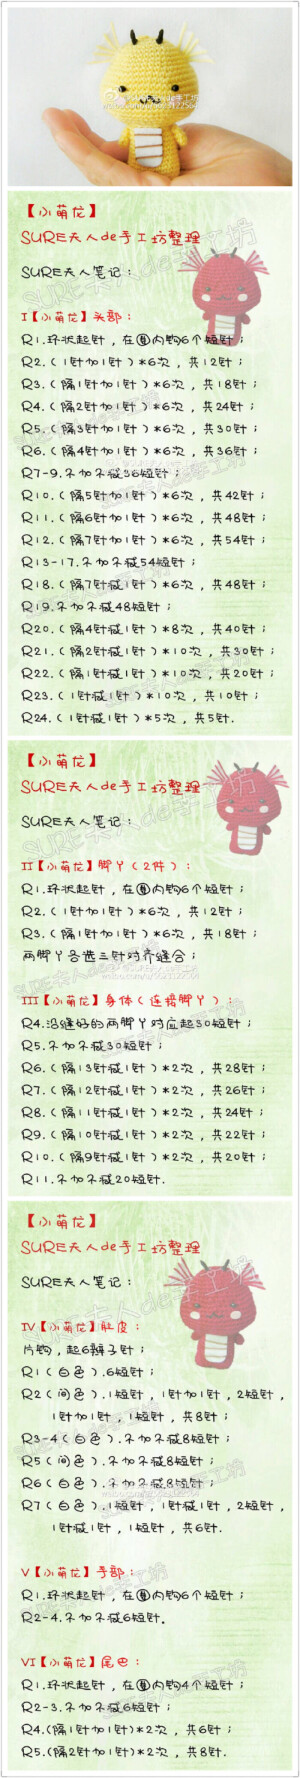 【小萌龙】
SURE夫人de手工坊整理
SURE夫人笔记：
I【小萌龙】头部：
R1.环状起针，在圈内钩6个短针；
R2.（1针加1针）*6次，共12针；
R3.（隔1针加1针）*6次，共18针；
R4.（隔2针加1针）*6次，共24针；
R5.（隔3针加1针）*6次，共30针；
R6.（隔4针加1针）*6次，共36针；
R7-9.不加不减36短针；
R10.（隔5针加1针）*6次，共42针；
R11.（隔6针加1针）*6次，共48针；
R12.（隔7针加1针）*6次，共54针；
R13-17.不加不减54短针；
R18.（隔7针减1针）*6次，共48针；
R19.不加不减48短针；
R20.（隔4针减1针）*8次，共40针；
R21.（隔2针减1针）*10次，共30针；
R22.（隔1针减1针）*10次，共20针；
R23.（1针减1针）*10次，共10针；
R24.（1针减1针）*5次，共5针.
【小萌龙】
SURE夫人de手工坊整理
SURE夫人笔记：
II【小萌龙】脚丫（2件）：
R1.环状起针，在圈内钩6个短针；
R2.（1针加1针）*6次，共12针；
R3.（隔1针加1针）*6次，共18针；
两脚丫各选三针对齐缝合；
III【小萌龙】身体（连接脚丫）：
R4.沿缝好的两脚丫对应起30短针；
R5.不加不减30短针；
R6.（隔13针减1针）*2次，共28针；
R7.（隔12针减1针）*2次，共26针；
R8.（隔11针减1针）*2次，共24针；
R9.（隔10针减1针）*2次，共22针；
R10.（隔9针减1针）*2次，共20针；
R11.不加不减20短针.
【小萌龙】
SURE夫人de手工坊整理
SURE夫人笔记：
IV【小萌龙】肚皮：
片钩，起6辫子针；
R1（白色）.6短针；
R2（间色）.1短针，1针加1针，2短针，
1针加1针，1短针，共8针；
R3-4（白色）.不加不减8短针；
R5（间色）.不加不减8短针；
R6（白色）.不加不减8短针；
R7（白色）.1短针，1针减1针，2短针，
1针减1针，1短针，共6针.
V【小萌龙】手部：
R1.环状起针，在圈内钩6个短针；
R2-4.不加不减6短针.
VI【小萌龙】尾巴：
R1.环状起针，在圈内钩4个短针；
R2-3.不加不减6短针；
R4.(隔1针加1针)*2次，共6针；
R5.(隔2针加1针)*2次，共8针.